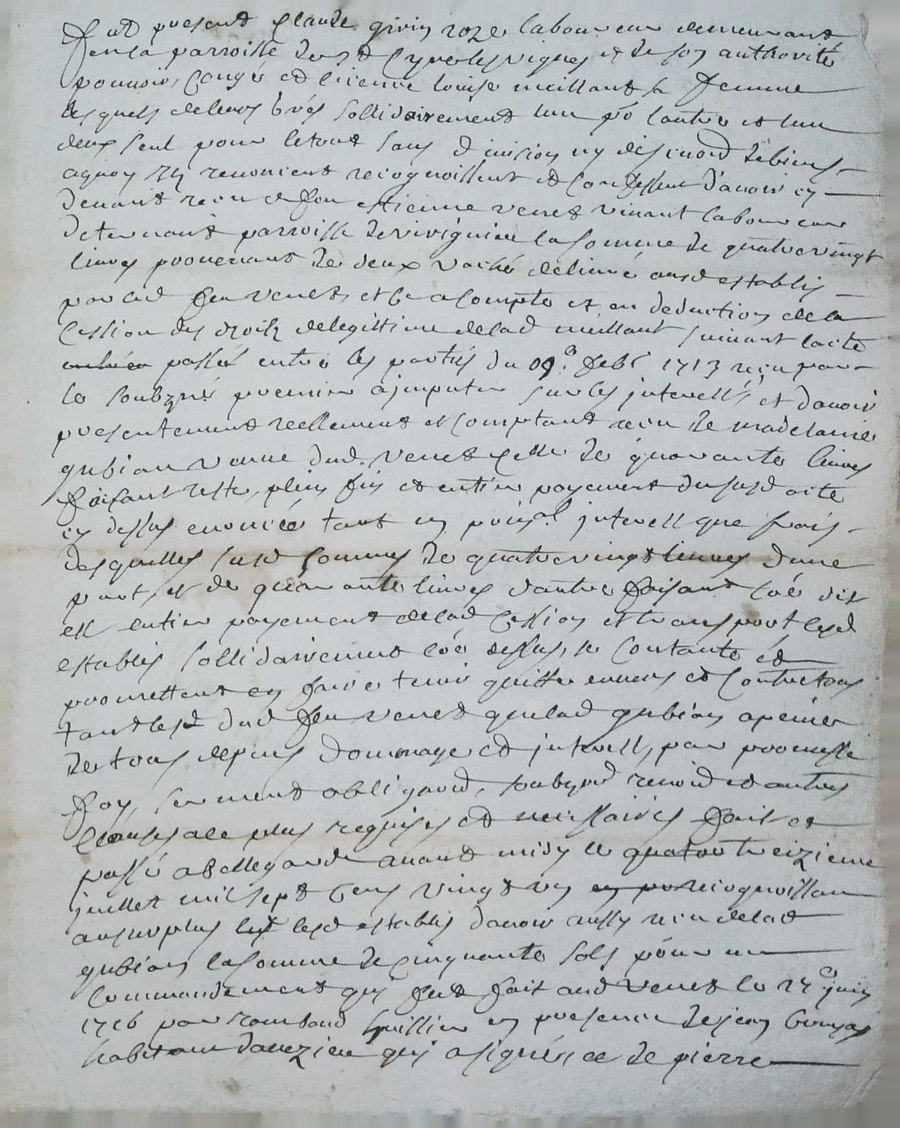 fut present Claude givin roze laboureur demeurant
en la parroisse de St Cyr les vignes et de son authorité
pouvoir, congé et licence louise meillant sa femme
lesquels de leurs grés sollidairement lun po lautre et lun
deux seul pour le tout sans division ny discution de biens
aquoy ils renoncent recognoissent et confessent d'avoir cy
devant receu de feu estienne venet vivant laboureur
de parroisse de la somme de quatre vingt
livres provenant de deux vache delivré ausd establis
par led feu venet, et ce acompte et en deduction de la
cession des droits de legittime de lad meillant suivant lacte
passée entre les partis du 09e feb 1713 receu par
le soubzné premier a imputer sur les interests, et d'avoir
presentement reellement et comptant receu de madelaine
gubian veuve dud. venet celle de quarante livres
faisant reste, plein fin et entier payement du susd acte
cy dessus enoncée tant en princal interest que frais
desquelles susd sommes de quatre vingt livres dune
part, et de quarante livres dautre faisant
et entier payement de lad cession et transport lesd
establis sollidairement co͞e dessus, se contante et
promettent en faire tenir quitte envers et contre tous
tant les dud feu venet que lad gubian a peine
de tous depens dommage et interest, par promesse
foy, serment obligaon, soubzon renoion et autres
clauses a ce plus requises et necessaires fait et
passé a bellegarde avant midy le quator treizieme
juillet mil sept cens vingt un recognoissan
au surplus lesd establis d'avoir aussy receu de lad
gubian la somme de cinquante sols pour un
commandement quy fut fait aud venet le 27e juin
1716 par en presence de jean
habitant d'avezieu quy a signé, et de pierre